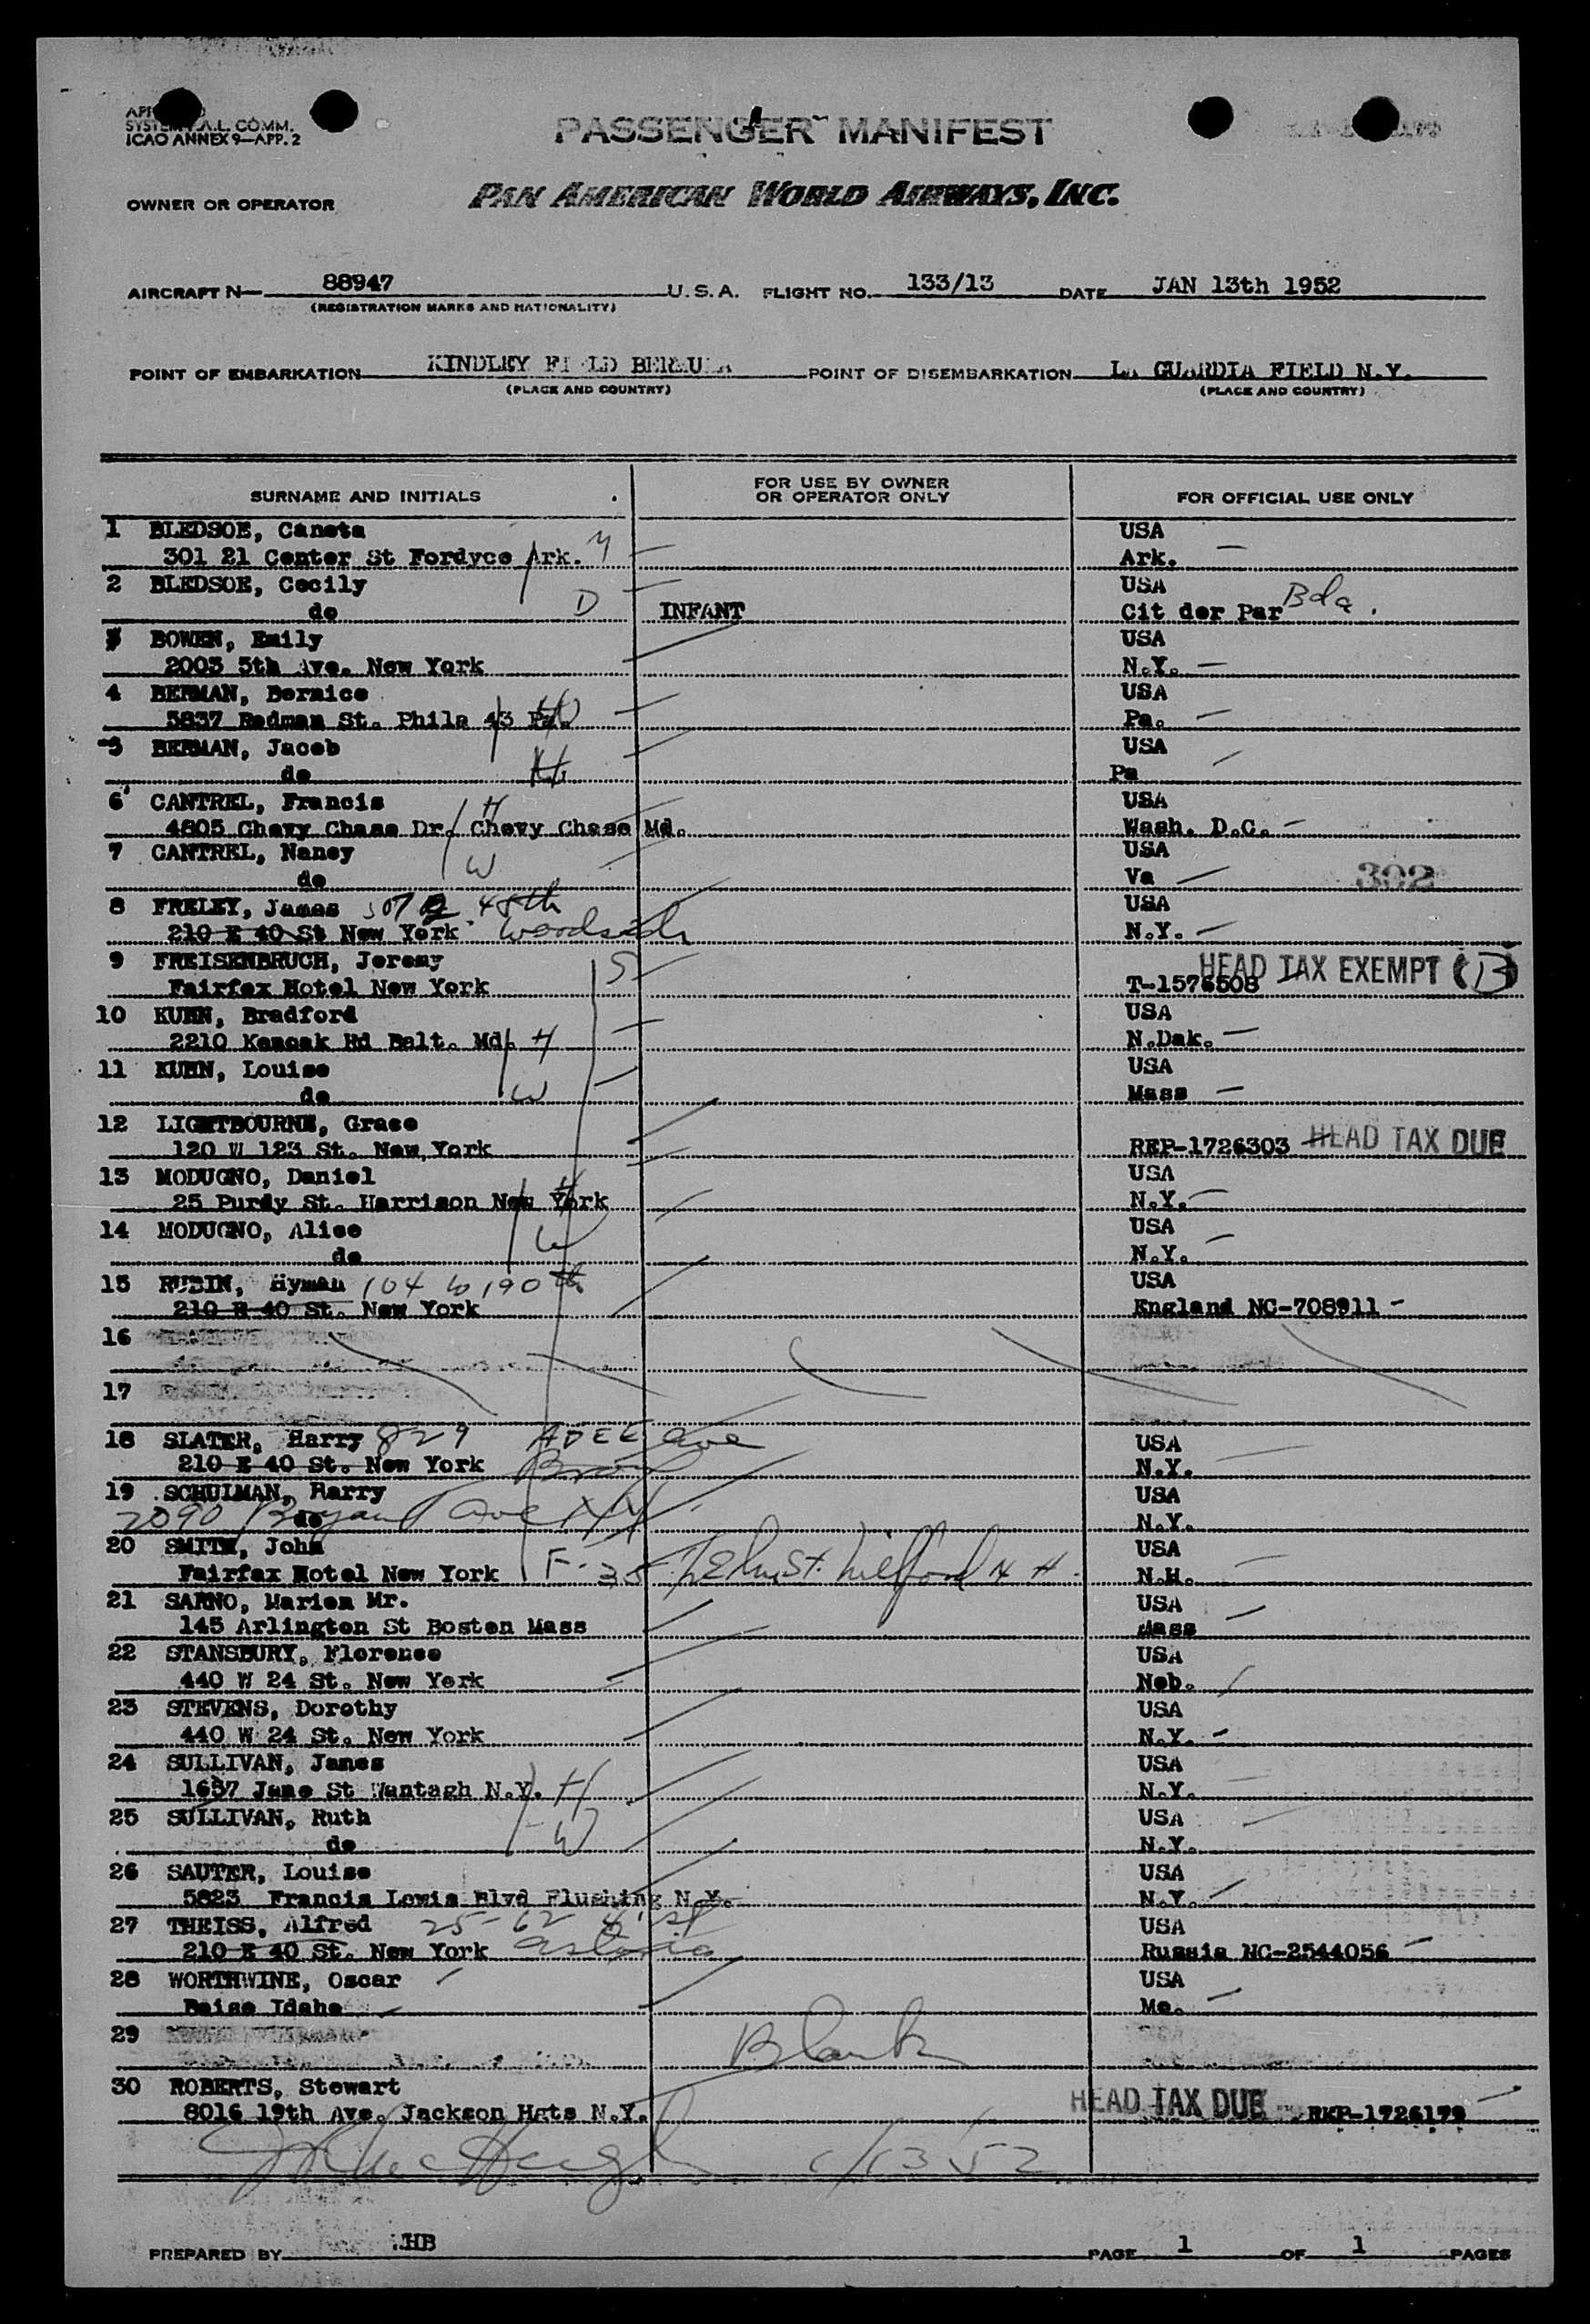 ICAO ANNEX 9—APP. 2
PASSENGER MANIFEST
OWNER OR OPERATOR PAN AMERICAN WORLD AIRWAYS, INC.
AIRCRAFT N— 88947 U.S.A. FLIGHT NO. 133/13 DATE JAN 13th 1952
(REGISTRATION MARKS AND NATIONALITY)
POINT OF EMBARKATION KINDLEY FIELD BERMUDA POINT OF DISEMBARKATION LA GUARDIA FIELD N.Y.
(PLACE AND COUNTRY) (PLACE AND COUNTRY)
SURNAME AND INITIALS FOR USE BY OWNER OR OPERATOR ONLY FOR OFFICIAL USE ONLY
1 BLEDSOE, Caneta USA
301 21 Center St Fordyce Ark. M Ark. —
2 BLEDSOE, Cecily USA
do D INFANT Cit der Par Bda.
3 BOWEN, Emily USA
2003 5th Ave. New York N.Y. —
4 BERMAN, Bernice USA
5837 Redman St. Phila 43 Pa. W Pa. —
5 BERMAN, Jacob USA
do H Pa
6 CANTREL, Francis H USA
4805 Chevy Chase Dr. Chevy Chase Md. Wash. D.C. —
7 CANTREL, Nancy USA
do W Va — 392
8 FRELEY, James 507 48th USA
210 E 40 St New York Woodside N.Y. —
9 FREISENBRUCH, Jeremy S HEAD TAX EXEMPT (B)
Fairfax Hotel New York T-1576508
10 KUHN, Bradford USA
2210 Kencak Rd Balt. Md. H N.Dak. —
11 KUHN, Louise USA
do W Mass —
12 LIGHTBOURNE, Grace
120 W 123 St. New York REP-1726303 HEAD TAX DUE
13 MODUGNO, Daniel H USA
25 Purdy St. Harrison New York N.Y. —
14 MODUGNO, Alice USA
do W N.Y. —
15 RUBIN, Hyman 104 W 190th USA
210 E 40 St. New York England NC-708911 -
16
17
18 SLATER, Harry 829 ADEE Ave USA
210 E 40 St. New York Bronx N.Y.
19 SCHULMAN, Harry USA
2090 Bryant Ave do N.Y.
20 SMITH, John USA
Fairfax Hotel New York Elm St. Milford N H N.H.
21 SARNO, Marion Mr. USA
145 Arlington St Boston Mass Mass
22 STANSBURY, Florence USA
440 W 24 St. New York Neb.
23 STEVENS, Dorothy USA
440 W 24 St. New York N.Y. -
24 SULLIVAN, James USA
1637 Jane St Wantagh N.Y. H N.Y.
25 SULLIVAN, Ruth USA
do W N.Y.
26 SAUTER, Louise USA
5823 Francis Lewis Blvd Flushing N.Y. N.Y.
27 THEISS, Alfred 25-62 USA
210 E 40 St. New York Astoria Russia NC-2544056
28 WORTHWINE, Oscar USA
Boise Idaho Mo. —
29 Blank
30 ROBERTS, Stewart
8016 19th Ave. Jackson Hgts N.Y. HEAD TAX DUE REP-1726179
1/13/52
PREPARED BY HB PAGE 1 OF 1 PAGES